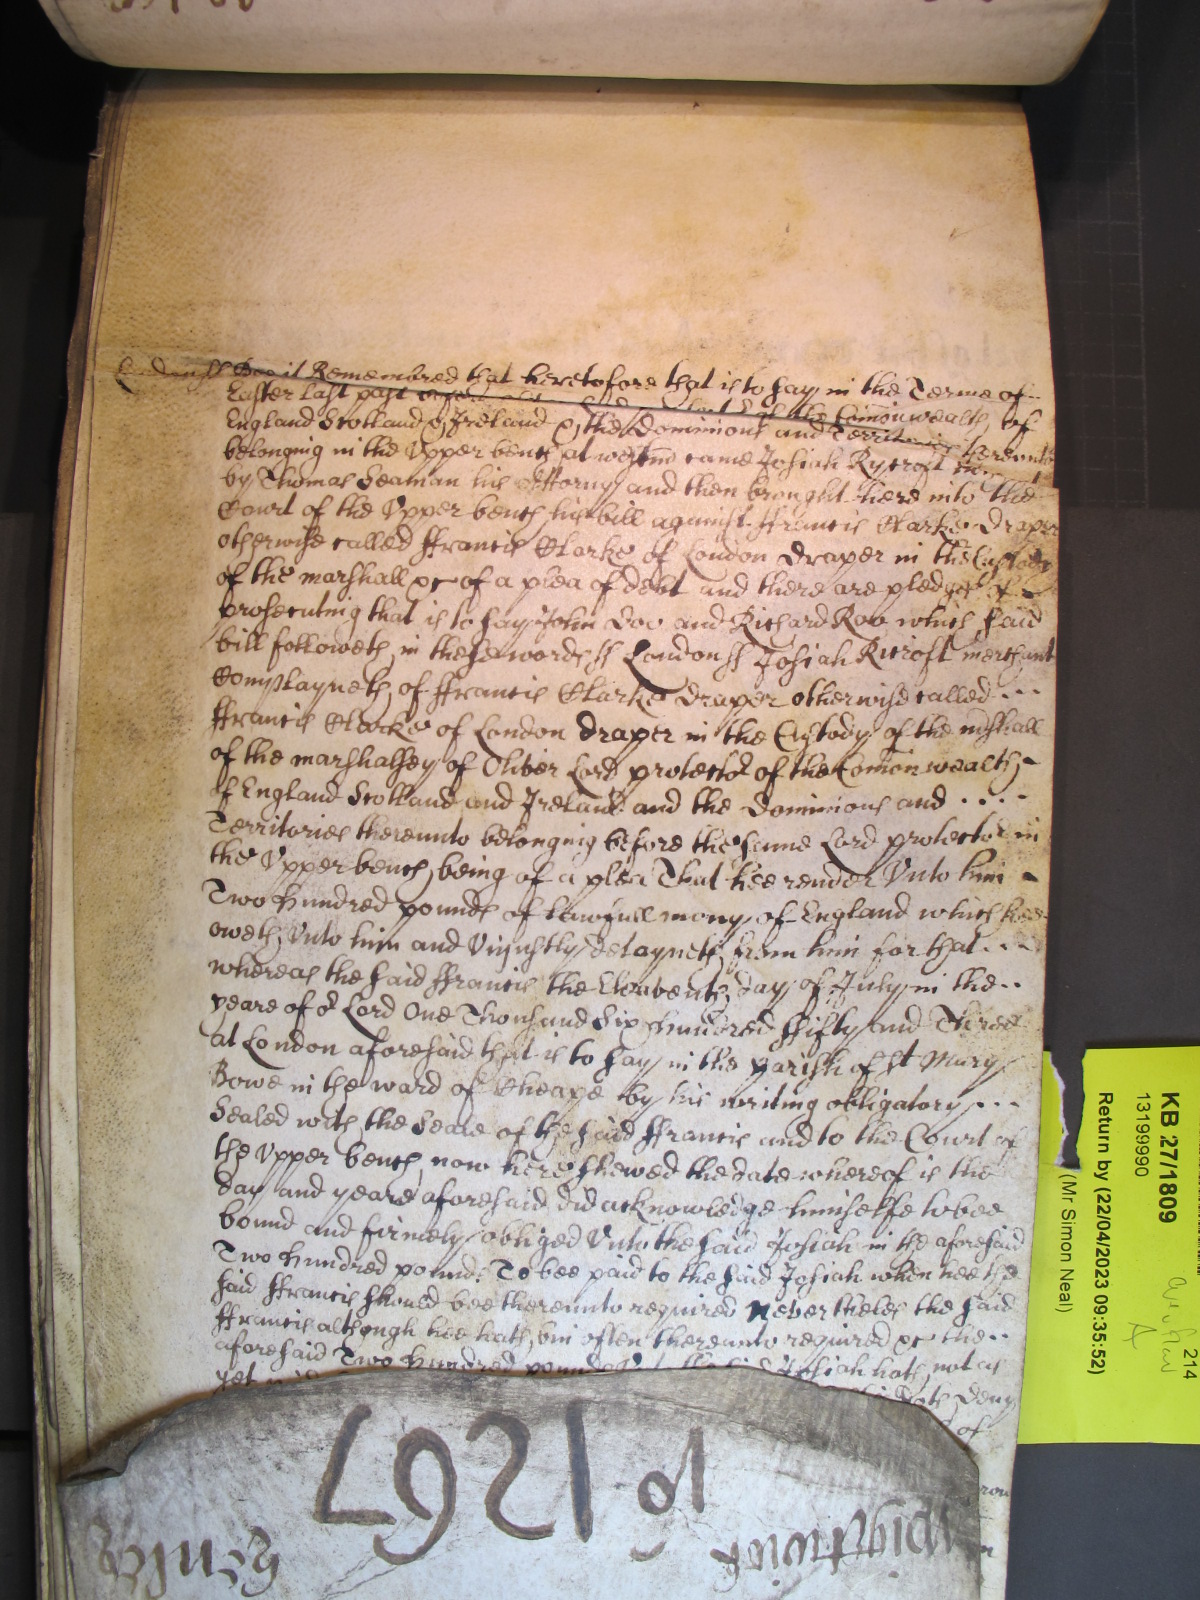 Bee it Remembred that heretofore that is to say in the Terme of
Easter last past the Comonwealth of
England Scotland & Ireland & the dominions and Territories thereunto
belonging in the Vpper bench at westm came Josiah Rycroft
by Thomas Seaman his Attorny and then brought here into the
Court of the Vpper bench his bill against ffrancis Clarke Draper
otherwise called ffrancis Clarke of London draper in the Custody
of the marshall &c of a plea of debt and there are pledges of
prosecuting that is to say John Doo and Richard Roo which said
bill followeth in these words ss London ss Josiah Ricroft merchant
Complayneth of ffrancis Clarke draper otherwise called
ffrancis Clarke of London draper in the Custody of the mshall
of the marshalsey of Oliver Lord protector of the Comonwealth
of England Scotland and Ireland and the dominions and
Territories thereunto belonging before the same Lord protector in
the Vpper bench being of a plea That hee render Vnto him
Two hundred pounds of lawfull mony of England which hee
oweth Vnto him and Viniustly detayneth from him for that
whereas the said ffrancis the Eleaventh day of July in the
yeare of or Lord One Thousand Six hundred ffifty and Three
at London aforesaid that is to say in the parish of st Mary
Bowe in the ward of Cheape by his writing obligatory
Sealed with the Seale of the said ffrancis and to the Court of
the Vpper bench now here shewed the date whereof is the
day and yeare aforesaid did acknowledge himselfe to bee
bound and firmely obliged Vnto the said Josiah in the aforesaid
Two hundred pounds To bee paid to the said Josiah when hee the
said ffrancis should bee thereunto required Neverthelес the said
ffrancis although hee hath bin often thereunto required &c the
aforesaid Two hundred pounds Josiah hath not as
yet doth deny
of
1267
KB 27/1809
13199990
Return by (22/04/2023 09:35:52)
(Mr Simon Neal)
214
A